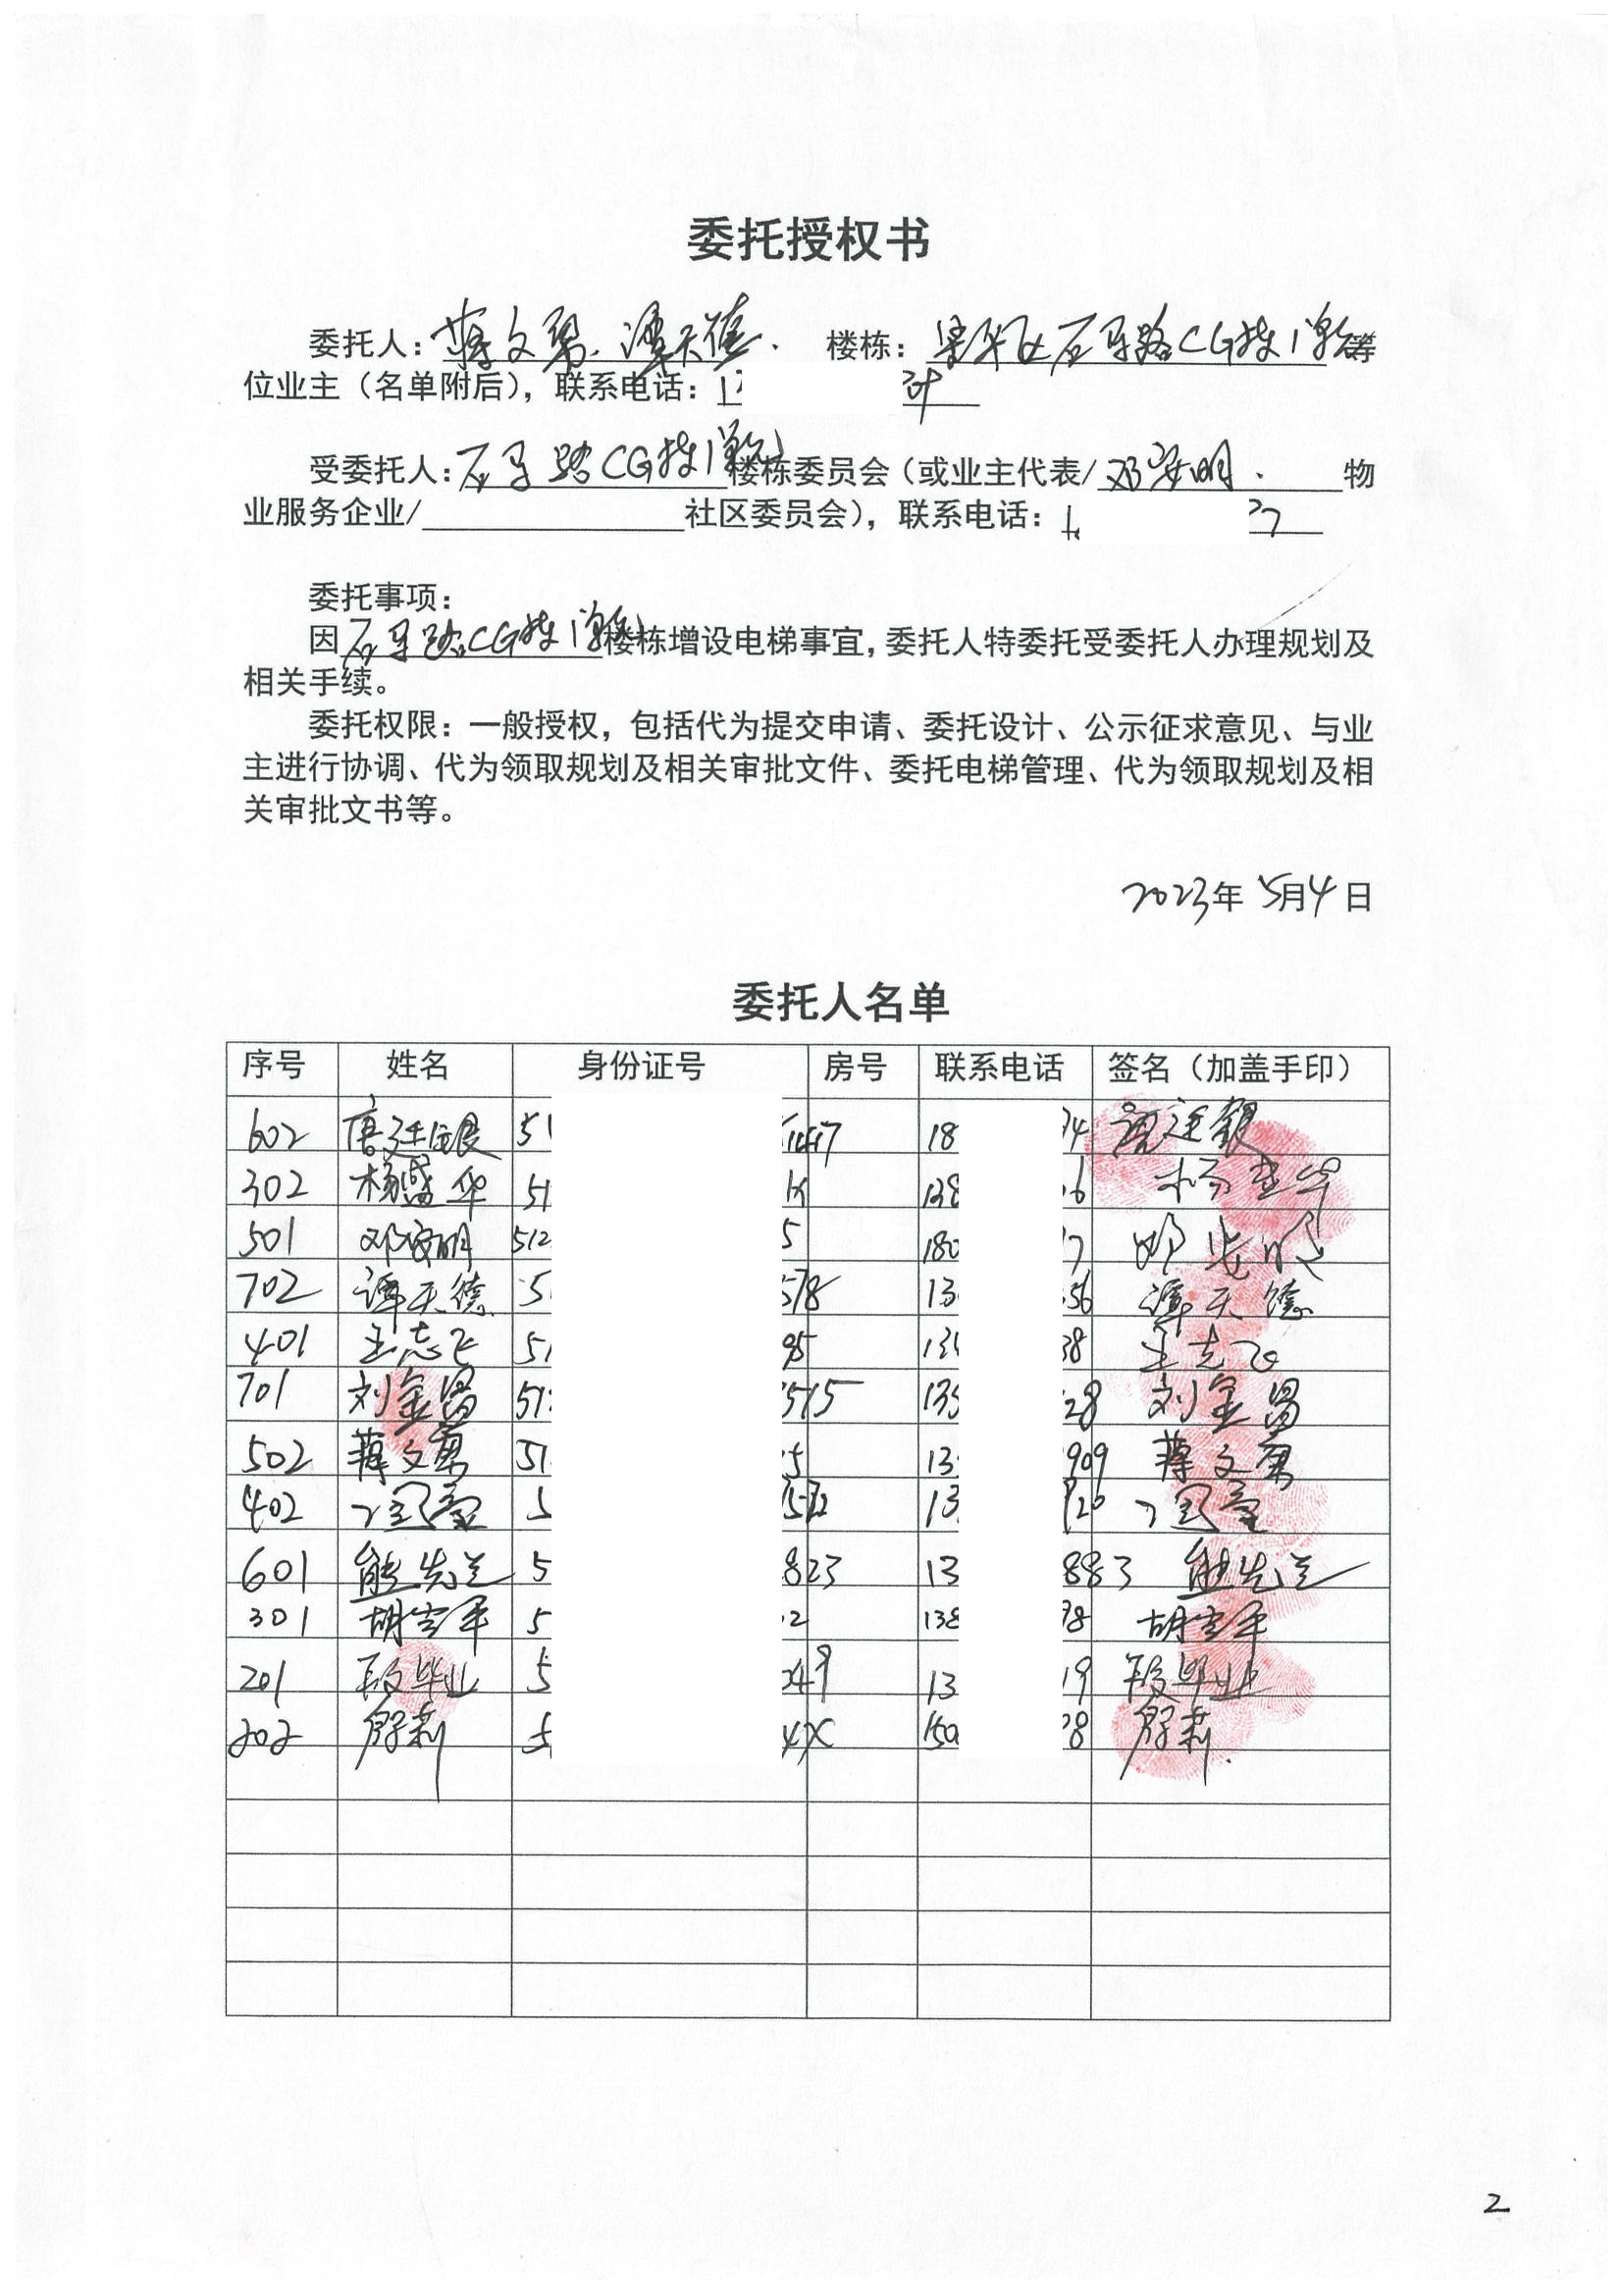 委托授权书
委托人：蒋文勇、谭天德. 楼栋：石马路CG栋1单元等
位业主（名单附后），联系电话：1
受委托人：石马路CG栋1单元楼栋委员会（或业主代表/邓安明. 物
业服务企业/ 社区委员会），联系电话：1 37
委托事项：
因石马路CG栋1单元楼栋增设电梯事宜，委托人特委托受委托人办理规划及
相关手续。
委托权限：一般授权，包括代为提交申请、委托设计、公示征求意见、与业
主进行协调、代为领取规划及相关审批文件、委托电梯管理、代为领取规划及相
关审批文书等。
2023年5月4日
委托人名单
序号 姓名 身份证号 房号 联系电话 签名（加盖手印）
602 唐廷银 51 17 18 94 唐廷银
302 杨盛华 51 138 6 杨盛华
501 邓安明 512 5 180 7 邓安明
702 谭天德 5 578 13 56 谭天德
401 王志飞 51 95 13 38 王志飞
701 刘金昌 51 515 135 28 刘金昌
502 蒋文勇 51 5 13 909 蒋文勇
402 5 572 13 20
601 熊先兰 5 823 13 883 熊先兰
301 胡 5 2 138 98 胡
201 段毕业 5 249 13 19 段毕业
202 舒莉 5 4X 150 98 舒莉.
2